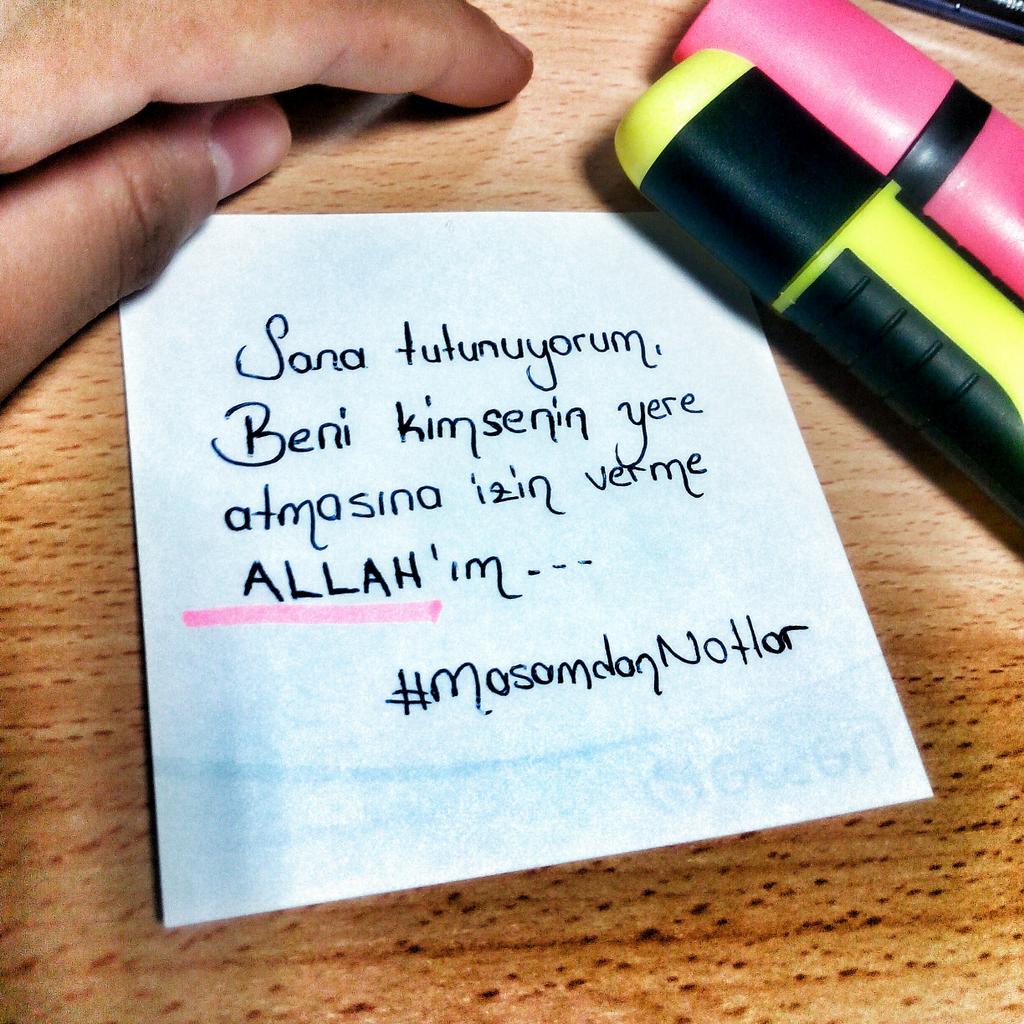 Sana tutunuyorum.
Beni kimsenin yere
atmasına izin verme
ALLAH'ım ---
#MasamdanNotlar